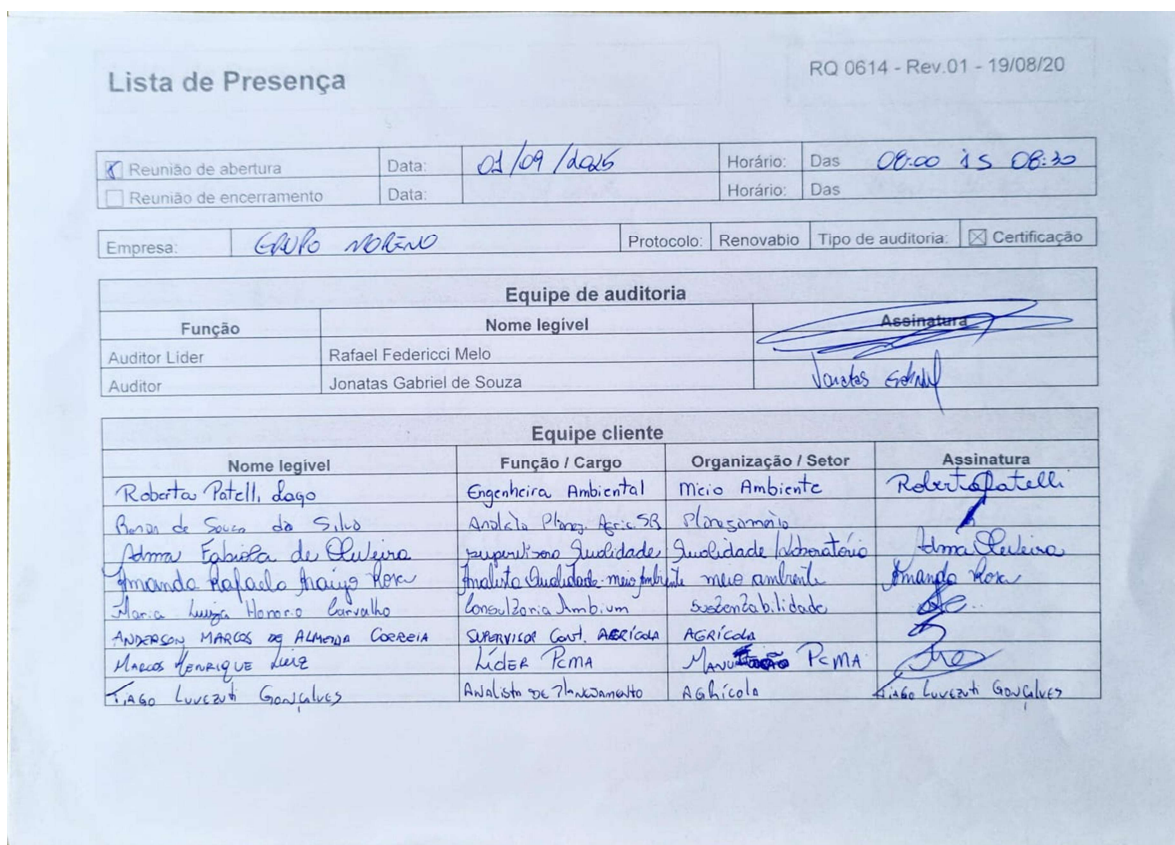 Lista de Presença
RQ 0614 - Rev.01 - 19/08/20
Reunião de abertura Data: 01/09/2025 Horário: Das 08:00 às 08:30
Reunião de encerramento Data: Horário: Das
Empresa: GRUPO MORENO Protocolo: Renovabio Tipo de auditoria: Certificação
Equipe de auditoria
Função Nome legível Assinatura
Auditor Líder Rafael Federicci Melo
Auditor Jonatas Gabriel de Souza Jonatas Gabriel
Equipe cliente
Nome legível Função / Cargo Organização / Setor Assinatura
Roberta Patelli Lago Engenheira Ambiental Meio Ambiente Roberta Patelli
de Souza da Silva Analista Planej. Agric. SR Planejamento
Adma Fabiola de Oliveira Supervisora Qualidade Qualidade/Laboratório Adma Oliveira
Amanda Rafaela Araújo Rosa Analista Qualidade-meio Ambiente meio ambiente Amanda Rosa
Maria Luiza Honorio Carvalho Consultoria Ambium Sustentabilidade
ANDERSON MARCOS DE ALMEIDA CORREIA SUPERVISOR CONT. AGRÍCOLA AGRÍCOLA
MARCOS HENRIQUE LUIZ LÍDER PCMA PCMA
TIAGO LUVEZUTI GONÇALVES ANALISTA DE PLANEJAMENTO AGRÍCOLA TIAGO LUVEZUTI GONÇALVES